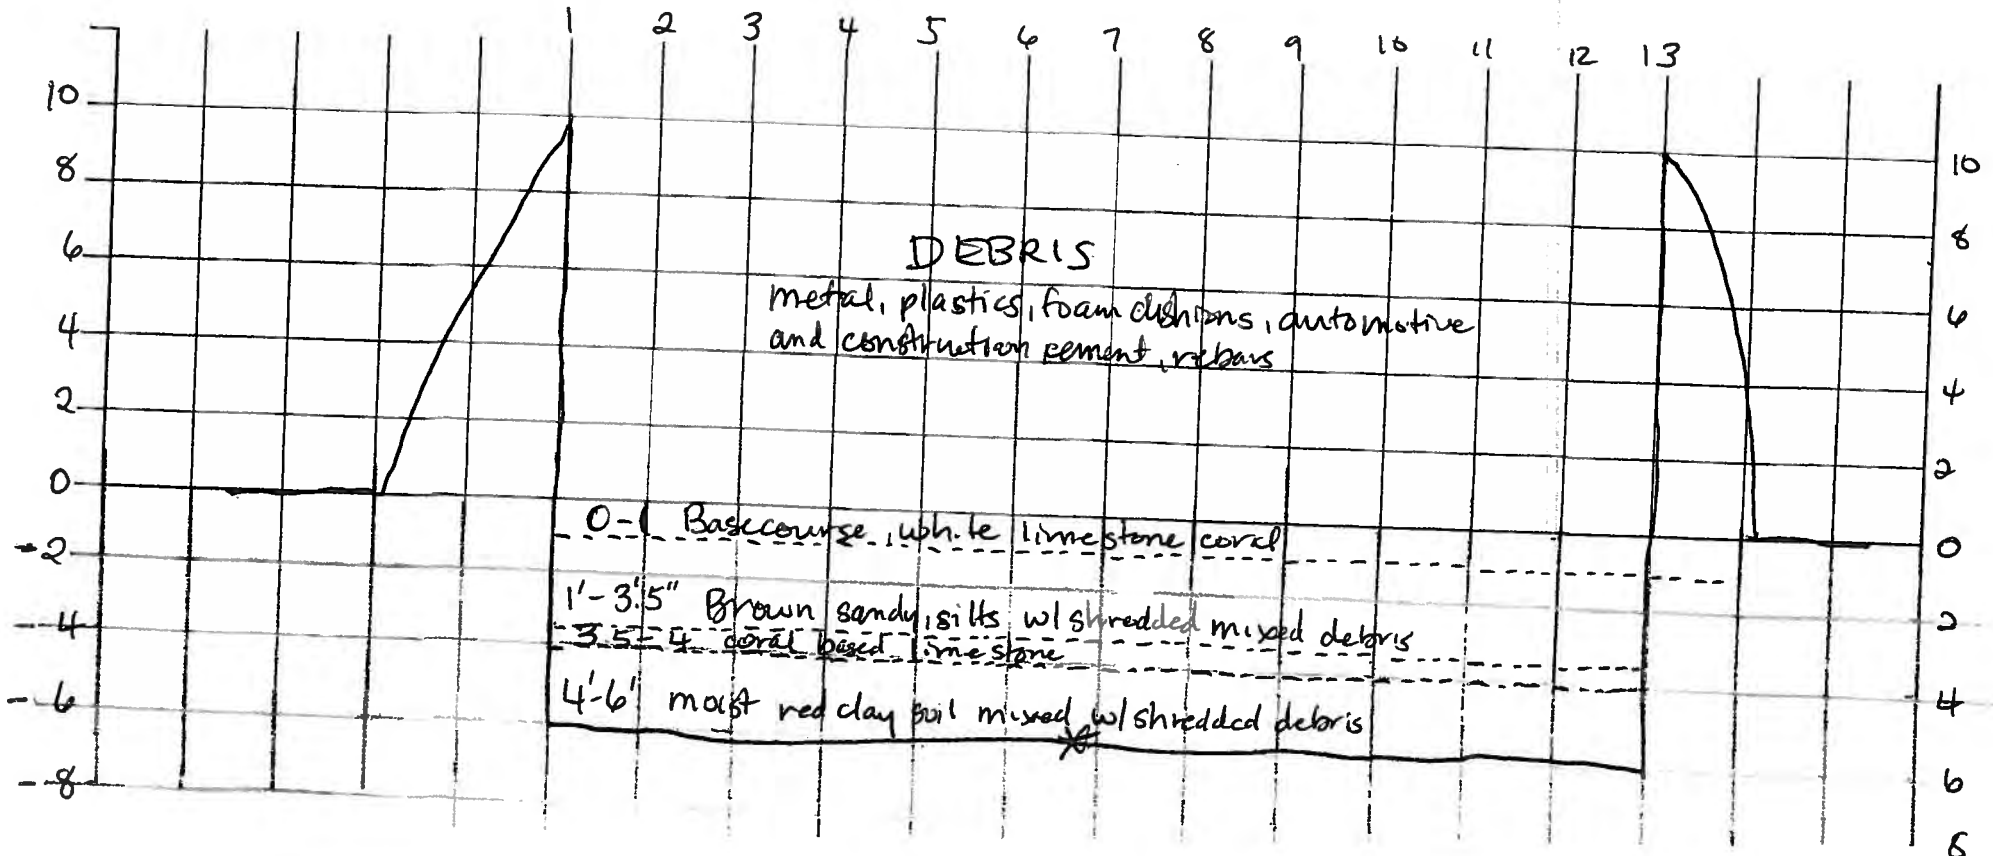 1 2 3 4 5 6 7 8 9 10 11 12 13
10 10
8 8
6 6
4 4
2 2
0 0
-2 2
-4 4
-6 6
-8 8
DEBRIS
metal, plastics, foam cushions, automotive
and construction cement, rebars
0-1 Basecourse, white limestone coral
1'-3'.5" Brown sandy, silts w/ shredded mixed debris
3.5-4 coral based limestone
4'-6' moist red clay soil mixed w/ shredded debris